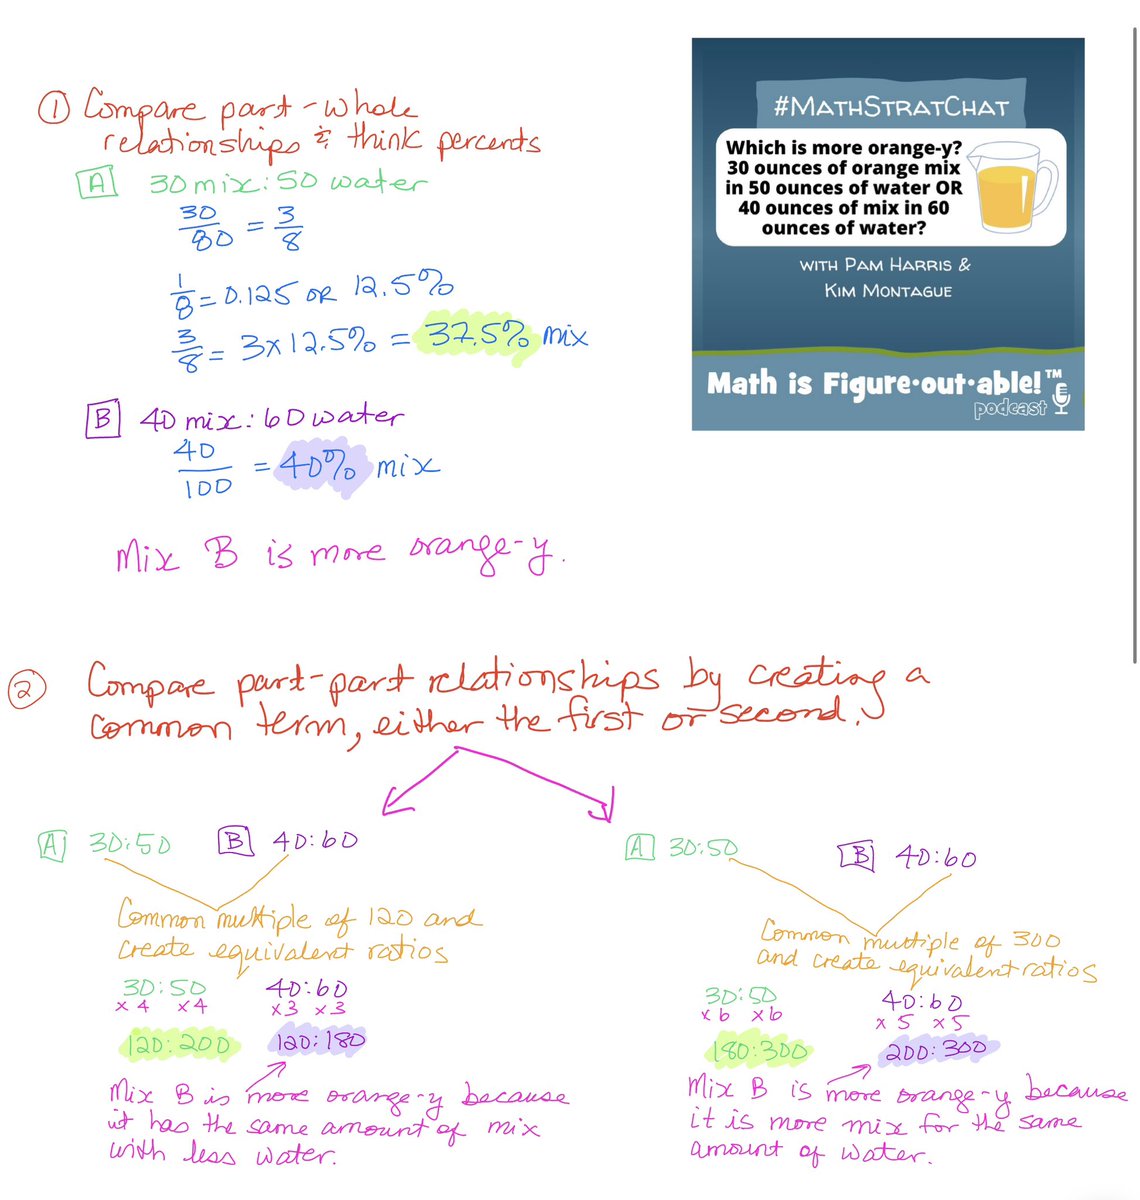 ① Compare part-whole
relationships & think percents
A 30 mix:50 water
30/80 = 3/8
1/8 = 0.125 OR 12.5%
3/8 = 3×12.5% = 37.5% mix
B 40 mix:60 water
40/100 = 40% mix
Mix B is more orange-y.
#MATHSTRATCHAT
Which is more orange-y?
30 ounces of orange mix
in 50 ounces of water OR
40 ounces of mix in 60
ounces of water?
WITH PAM HARRIS &
KIM MONTAGUE
Math is Figure•out•able!™
podcast
② Compare part-part relationships by creating a
common term, either the first or second.
A 30:50 B 40:60
Common multiple of 120 and
create equivalent ratios
30:50 40:60
×4 ×4 ×3 ×3
120:200 120:180
Mix B is more orange-y because
it has the same amount of mix
with less water.
A 30:50 B 40:60
Common multiple of 300
and create equivalent ratios
30:50 40:60
×6 ×6 ×5 ×5
180:300 200:300
Mix B is more orange-y because
it is more mix for the same
amount of water.